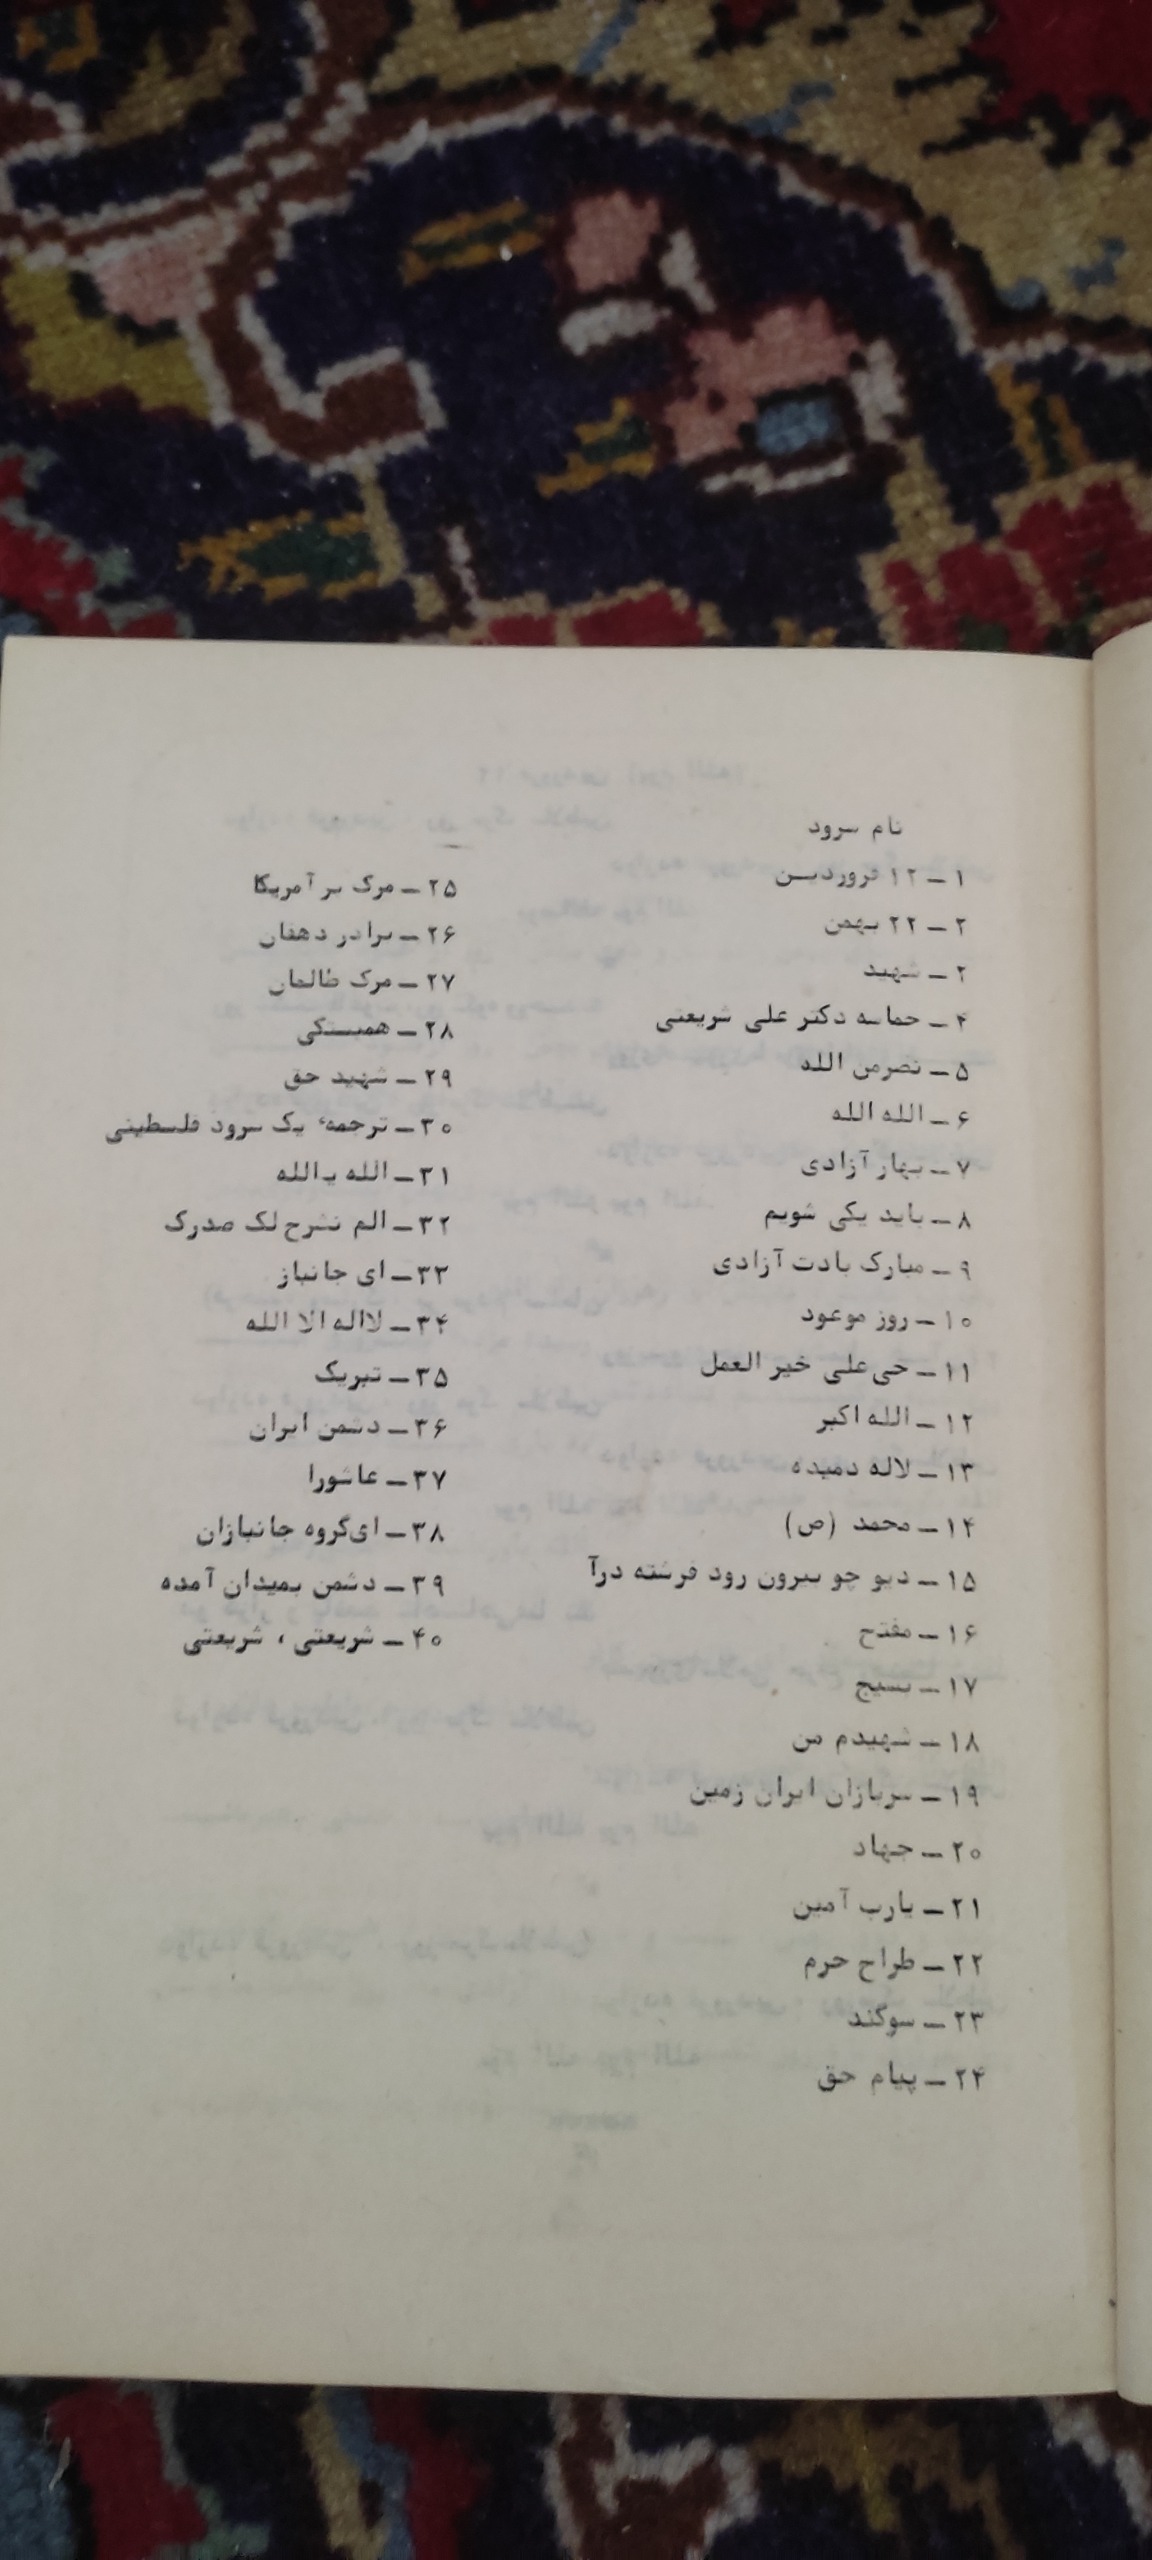 نام سرود
۱ – ۱۲ فروردین
۲ – ۲۲ بهمن
۳ – شهید
۴ – حماسه دکتر علی شریعتی
۵ – نصرمن الله
۶ – الله الله
۷ – بهار آزادی
۸ – باید یکی شویم
۹ – مبارک بادت آزادی
۱۰ – روز موعود
۱۱ – حی‌علی خیر العمل
۱۲ – الله اکبر
۱۳ – لاله دمیده
۱۴ – محمد (ص)
۱۵ – دیو چو بیرون رود فرشته درآ
۱۶ – مفتح
۱۷ – بسیج
۱۸ – شهیدم من
۱۹ – سربازان ایران زمین
۲۰ – جهاد
۲۱ – یارب آمین
۲۲ – طراح حرم
۲۳ – سوگند
۲۴ – پیام حق
۲۵ – مرگ بر آمریکا
۲۶ – برادر دهقان
۲۷ – مرگ ظالمان
۲۸ – همبستگی
۲۹ – شهید حق
۳۰ – ترجمهٔ یک سرود فلسطینی
۳۱ – الله یالله
۳۲ – الم نشرح لک صدرک
۳۳ – ای جانباز
۳۴ – لااله الا الله
۳۵ – تبریک
۳۶ – دشمن ایران
۳۷ – عاشورا
۳۸ – ای‌گروه جانبازان
۳۹ – دشمن بمیدان آمده
۴۰ – شریعتی ، شریعتی